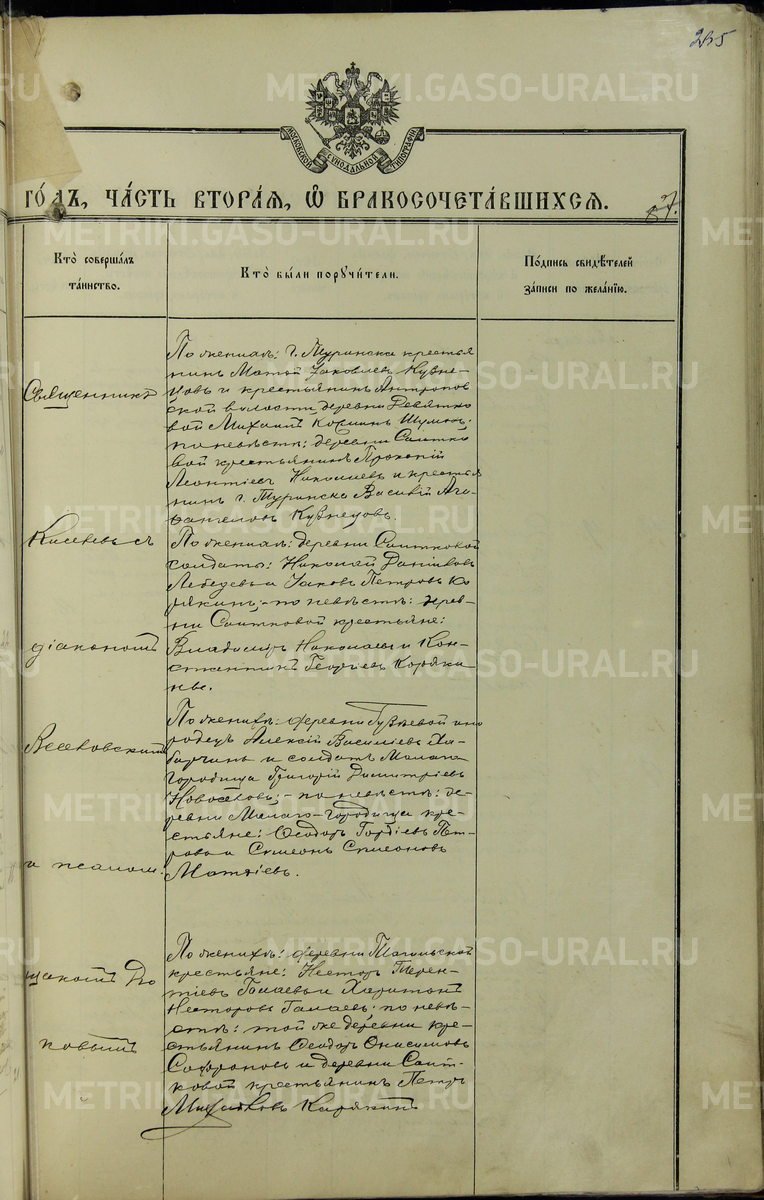 235
МОСКОВСКОЙ СѴНОДАЛЬНОЙ ТИПОГРАФІИ
ГО́ДЪ, ЧА́СТЬ ВТОРА́Я, Ѡ БРАКОСОЧЕТА́ВШИХСЯ.
Кто̀ соверша́лъ
та́инство.
Кто̀ бы́ли поручи́тели.
По́дпись свидѣ́телей
за́писи по жела́нїю.
Священникъ
діакономъ
и псалом
По жениху: г. Туринска крестья
нинъ Матѳій Іаковлевъ Кузне-
цовъ и крестьянинъ Антропов
ской волости деревни Девятко
вой Михаилъ
по невѣстѣ: деревни Саитко
вой крестьянинъ Прокопій
Леонтіевъ Николаевъ и крестья
нинъ г. Туринска Василій Ага-
ѳангеловъ Кузнецовъ.
По жениху: деревни Саитковой
солдаты: Николай Даниловъ
Лебедевъ и Іаковъ Петровъ Ко
рякинъ, - по невѣстѣ: дерев
ни Саитковой крестьяне:
Владиміръ Николаевъ и Кон-
стантинъ Георгіевъ Коряки
ны.
По женихѣ: деревни ино
родецъ Алексій Василіевъ Ха-
барчинъ и солдатъ Малаго
Городища Григорій Димитріевъ
Новоселовъ; - по невѣстѣ: де-
ревни Малаго-городища кре-
стьяне: Ѳеодоръ Гордіевъ Пет-
ровъ и Симеонъ Симеоновъ
Матѳіевъ.
По женихѣ: деревни Тагильской
крестьяне: Несторъ Терен-
тіевъ Галаевъ и Харитонъ
Несторовъ Галаевъ; по невѣ-
стѣ: той же деревни кре-
стьянинъ Ѳеодоръ Онисимовъ
Софроновъ и деревни Саит-
ковой крестьянинъ Петръ
Михайловъ Карякинъ
METRIKI.GASO-URAL.RU